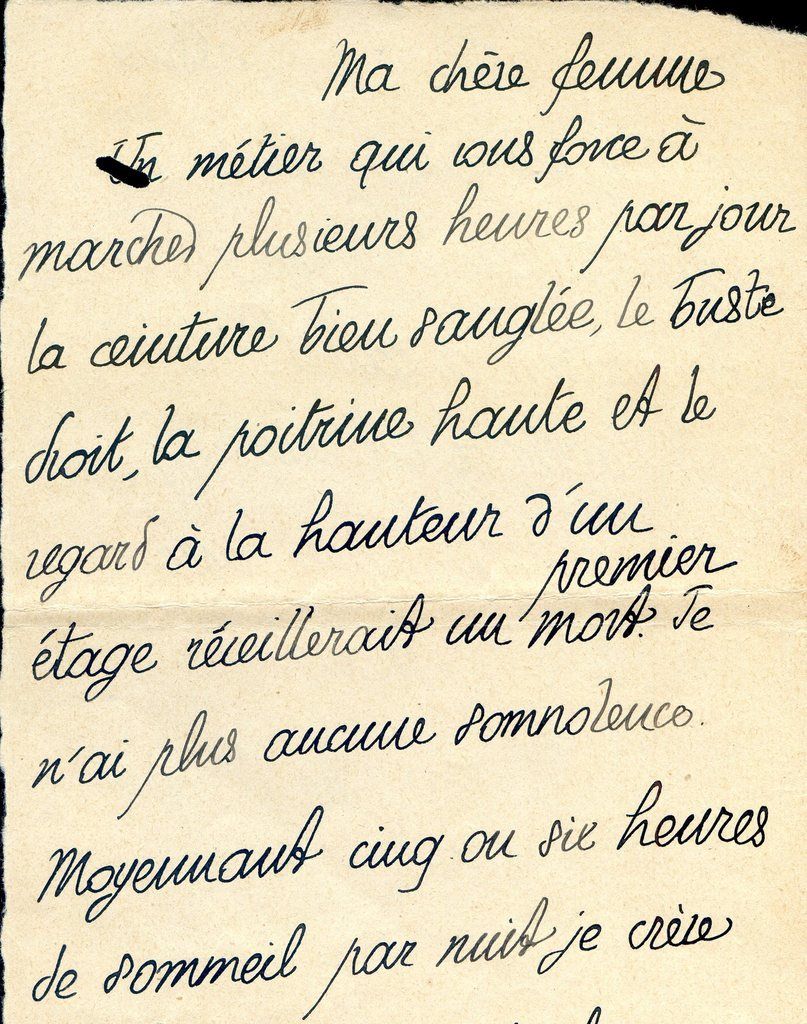 Ma chère femme
Un métier qui vous force à
marcher plusieurs heures par jour
la ceinture bien sanglée, le buste
droit, la poitrine haute et le
regard à la hauteur d'un
premier
étage réveillerait un mort. Je
n'ai plus aucune somnolence.
Moyennant cinq ou six heures
de sommeil par nuit je crève